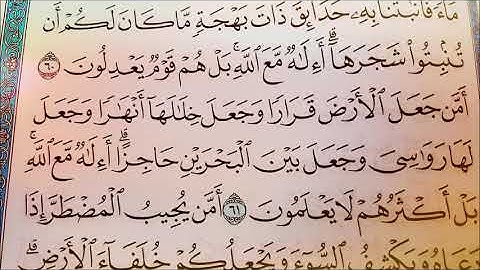 مَآءً فَأَنۢبَتۡنَا بِهِۦ حَدَآئِقَ ذَاتَ بَهۡجَةٖ مَّا كَانَ لَكُمۡ أَن
تُنۢبِتُواْ شَجَرَهَآۗ أَءِلَٰهٞ مَّعَ ٱللَّهِۚ بَلۡ هُمۡ قَوۡمٞ يَعۡدِلُونَ ٦٠
أَمَّن جَعَلَ ٱلۡأَرۡضَ قَرَارٗا وَجَعَلَ خِلَٰلَهَآ أَنۡهَٰرٗا وَجَعَلَ
لَهَا رَوَٰسِيَ وَجَعَلَ بَيۡنَ ٱلۡبَحۡرَيۡنِ حَاجِزًاۗ أَءِلَٰهٞ مَّعَ ٱللَّهِۚ
بَلۡ أَكۡثَرُهُمۡ لَا يَعۡلَمُونَ ٦١ أَمَّن يُجِيبُ ٱلۡمُضۡطَرَّ إِذَا
دَعَاهُ وَيَكۡشِفُ ٱلسُّوٓءَ وَيَجۡعَلُكُمۡ خُلَفَآءَ ٱلۡأَرۡضِۗ